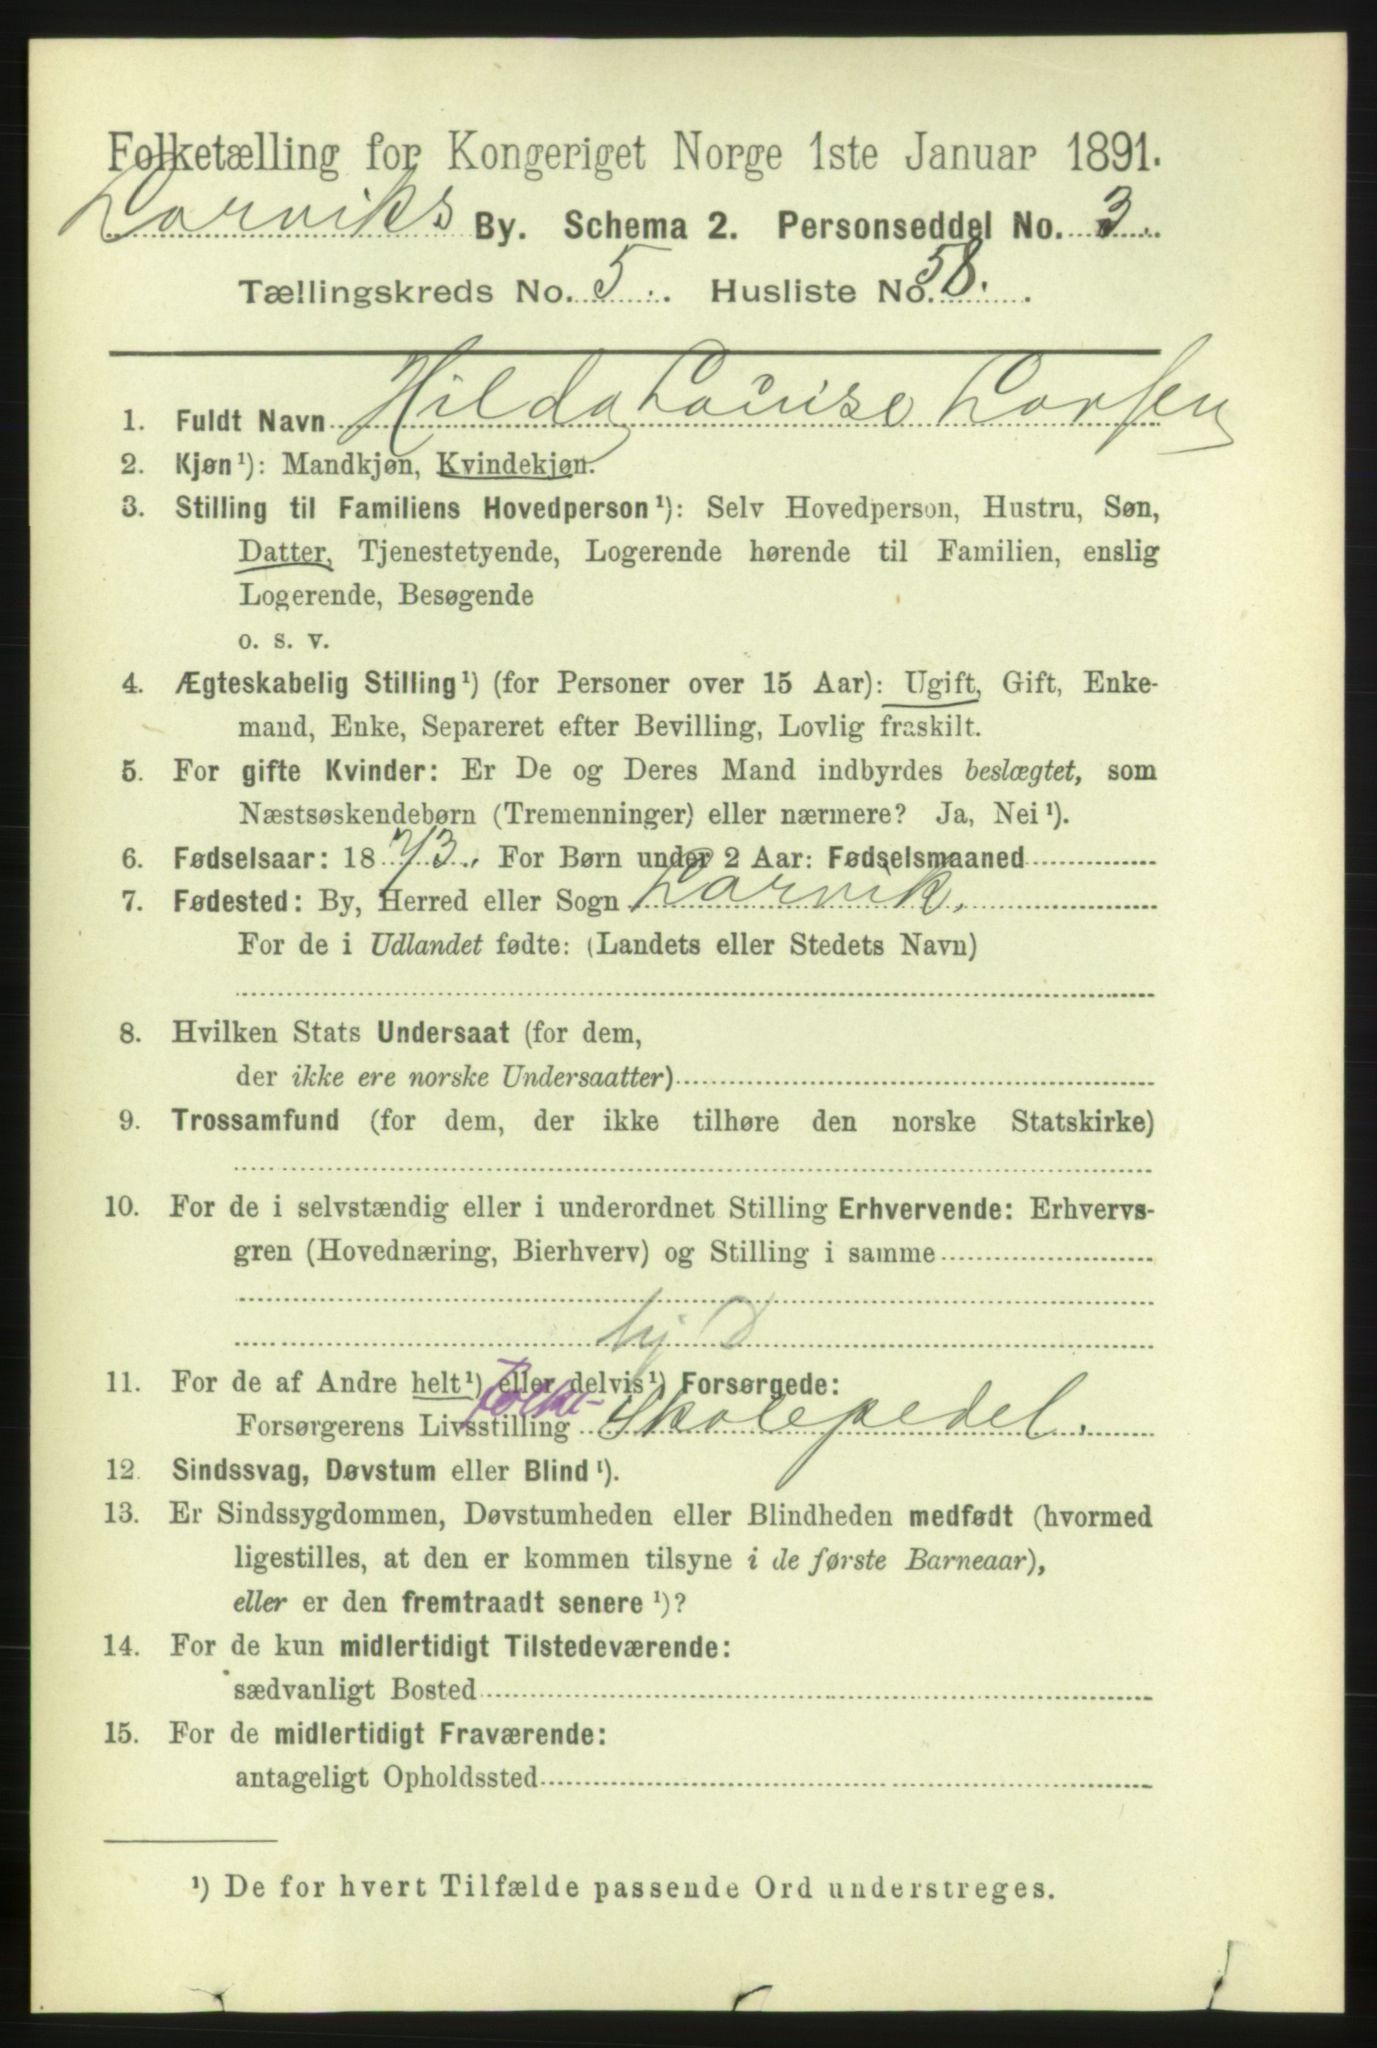 Folketælling for Kongeriget Norge 1ste Januar 1891.
Larviks By. Schema 2. Personseddel No. 3.
Tællingskreds No. 5. Husliste No. 58.
1. Fuldt Navn Hilda Louise Larsen
2. Kjøn¹): Mandkjøn, Kvindekjøn.
3. Stilling til Familiens Hovedperson¹): Selv Hovedperson, Hustru, Søn,
Datter, Tjenestetyende, Logerende hørende til Familien, enslig
Logerende, Besøgende
o. s. v.
4. Ægteskabelig Stilling¹) (for Personer over 15 Aar): Ugift, Gift, Enke-
mand, Enke, Separeret efter Bevilling, Lovlig fraskilt.
5. For gifte Kvinder: Er De og Deres Mand indbyrdes beslægtet, som
Næstsøskendebørn (Tremenninger) eller nærmere? Ja, Nei¹).
6. Fødselsaar: 1873. For Børn under 2 Aar: Fødselsmaaned
7. Fødested: By, Herred eller Sogn Larvik.
For de i Udlandet fødte: (Landets eller Stedets Navn)
8. Hvilken Stats Undersaat (for dem,
der ikke ere norske Undersaatter)
9. Trossamfund (for dem, der ikke tilhøre den norske Statskirke)
10. For de i selvstændig eller i underordnet Stilling Erhvervende: Erhvervs-
gren (Hovednæring, Bierhverv) og Stilling i samme
hj D
11. For de af Andre helt¹) eller delvis¹) Forsørgede:
Forsørgerens Livsstilling Folke- Skolepedel.
12. Sindssvag, Døvstum eller Blind¹).
13. Er Sindssygdommen, Døvstumheden eller Blindheden medfødt (hvormed
ligestilles, at den er kommen tilsyne i de første Barneaar),
eller er den fremtraadt senere¹)?
14. For de kun midlertidigt Tilstedeværende:
sædvanligt Bosted
15. For de midlertidigt Fraværende:
antageligt Opholdssted
¹) De for hvert Tilfælde passende Ord understreges.